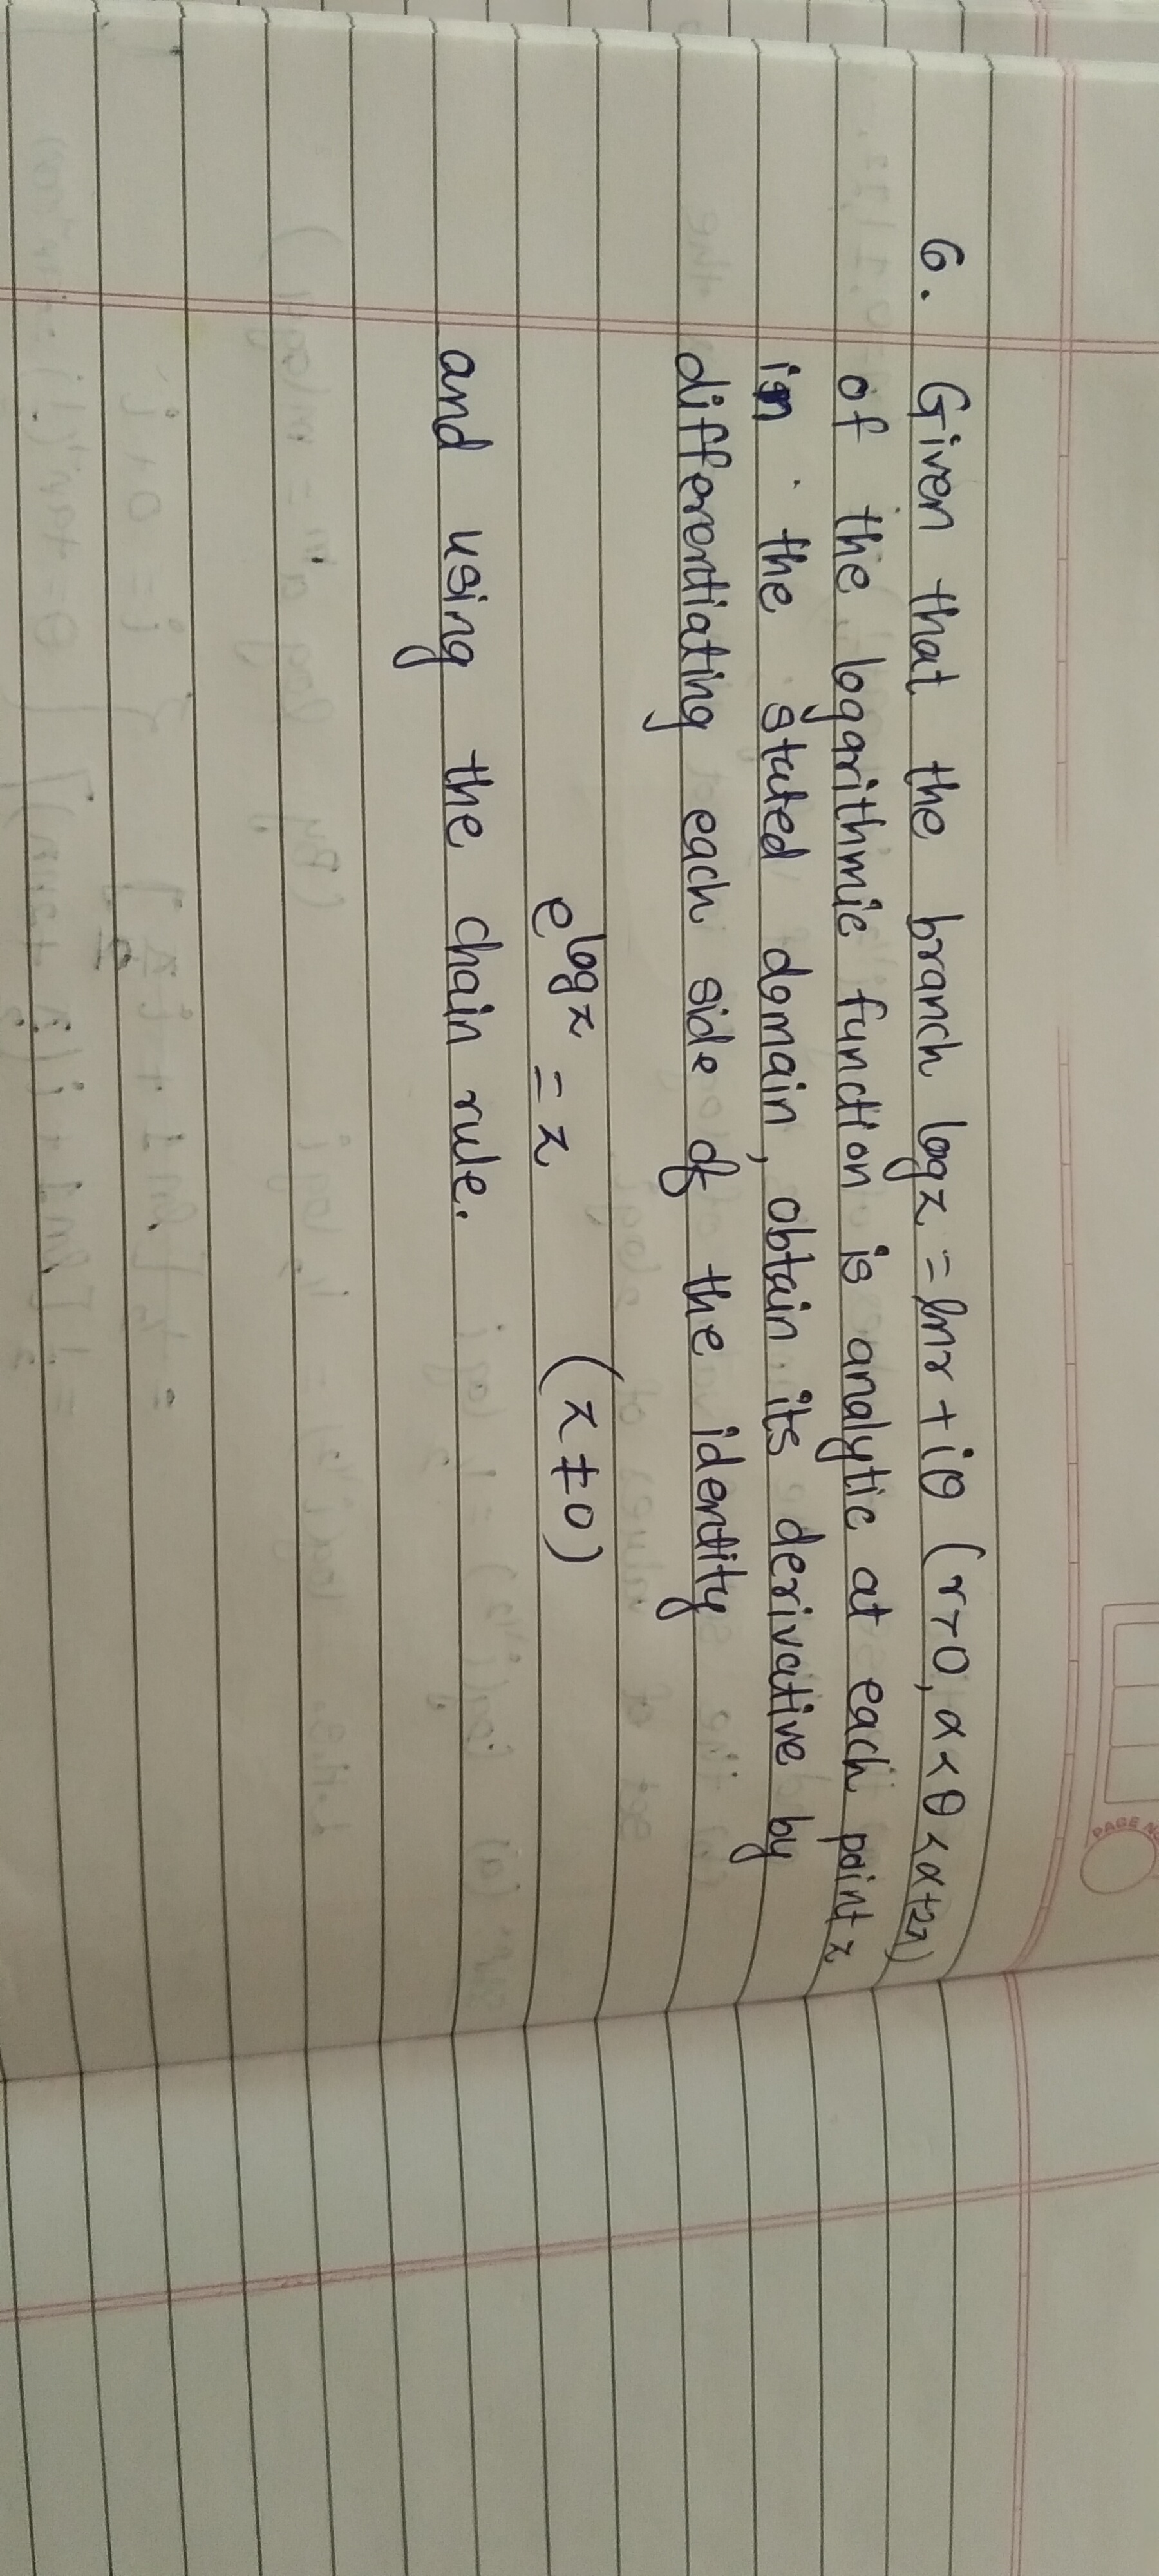 PAGE NO
6. Given that the branch log z = ln r + iθ (r>0, α<θ<α+2π)
of the logarithmic function is analytic at each point z
in the stated domain, obtain its derivative by
differentiating each side of the identity
e^{log z} = z (z ≠ 0)
and using the chain rule.